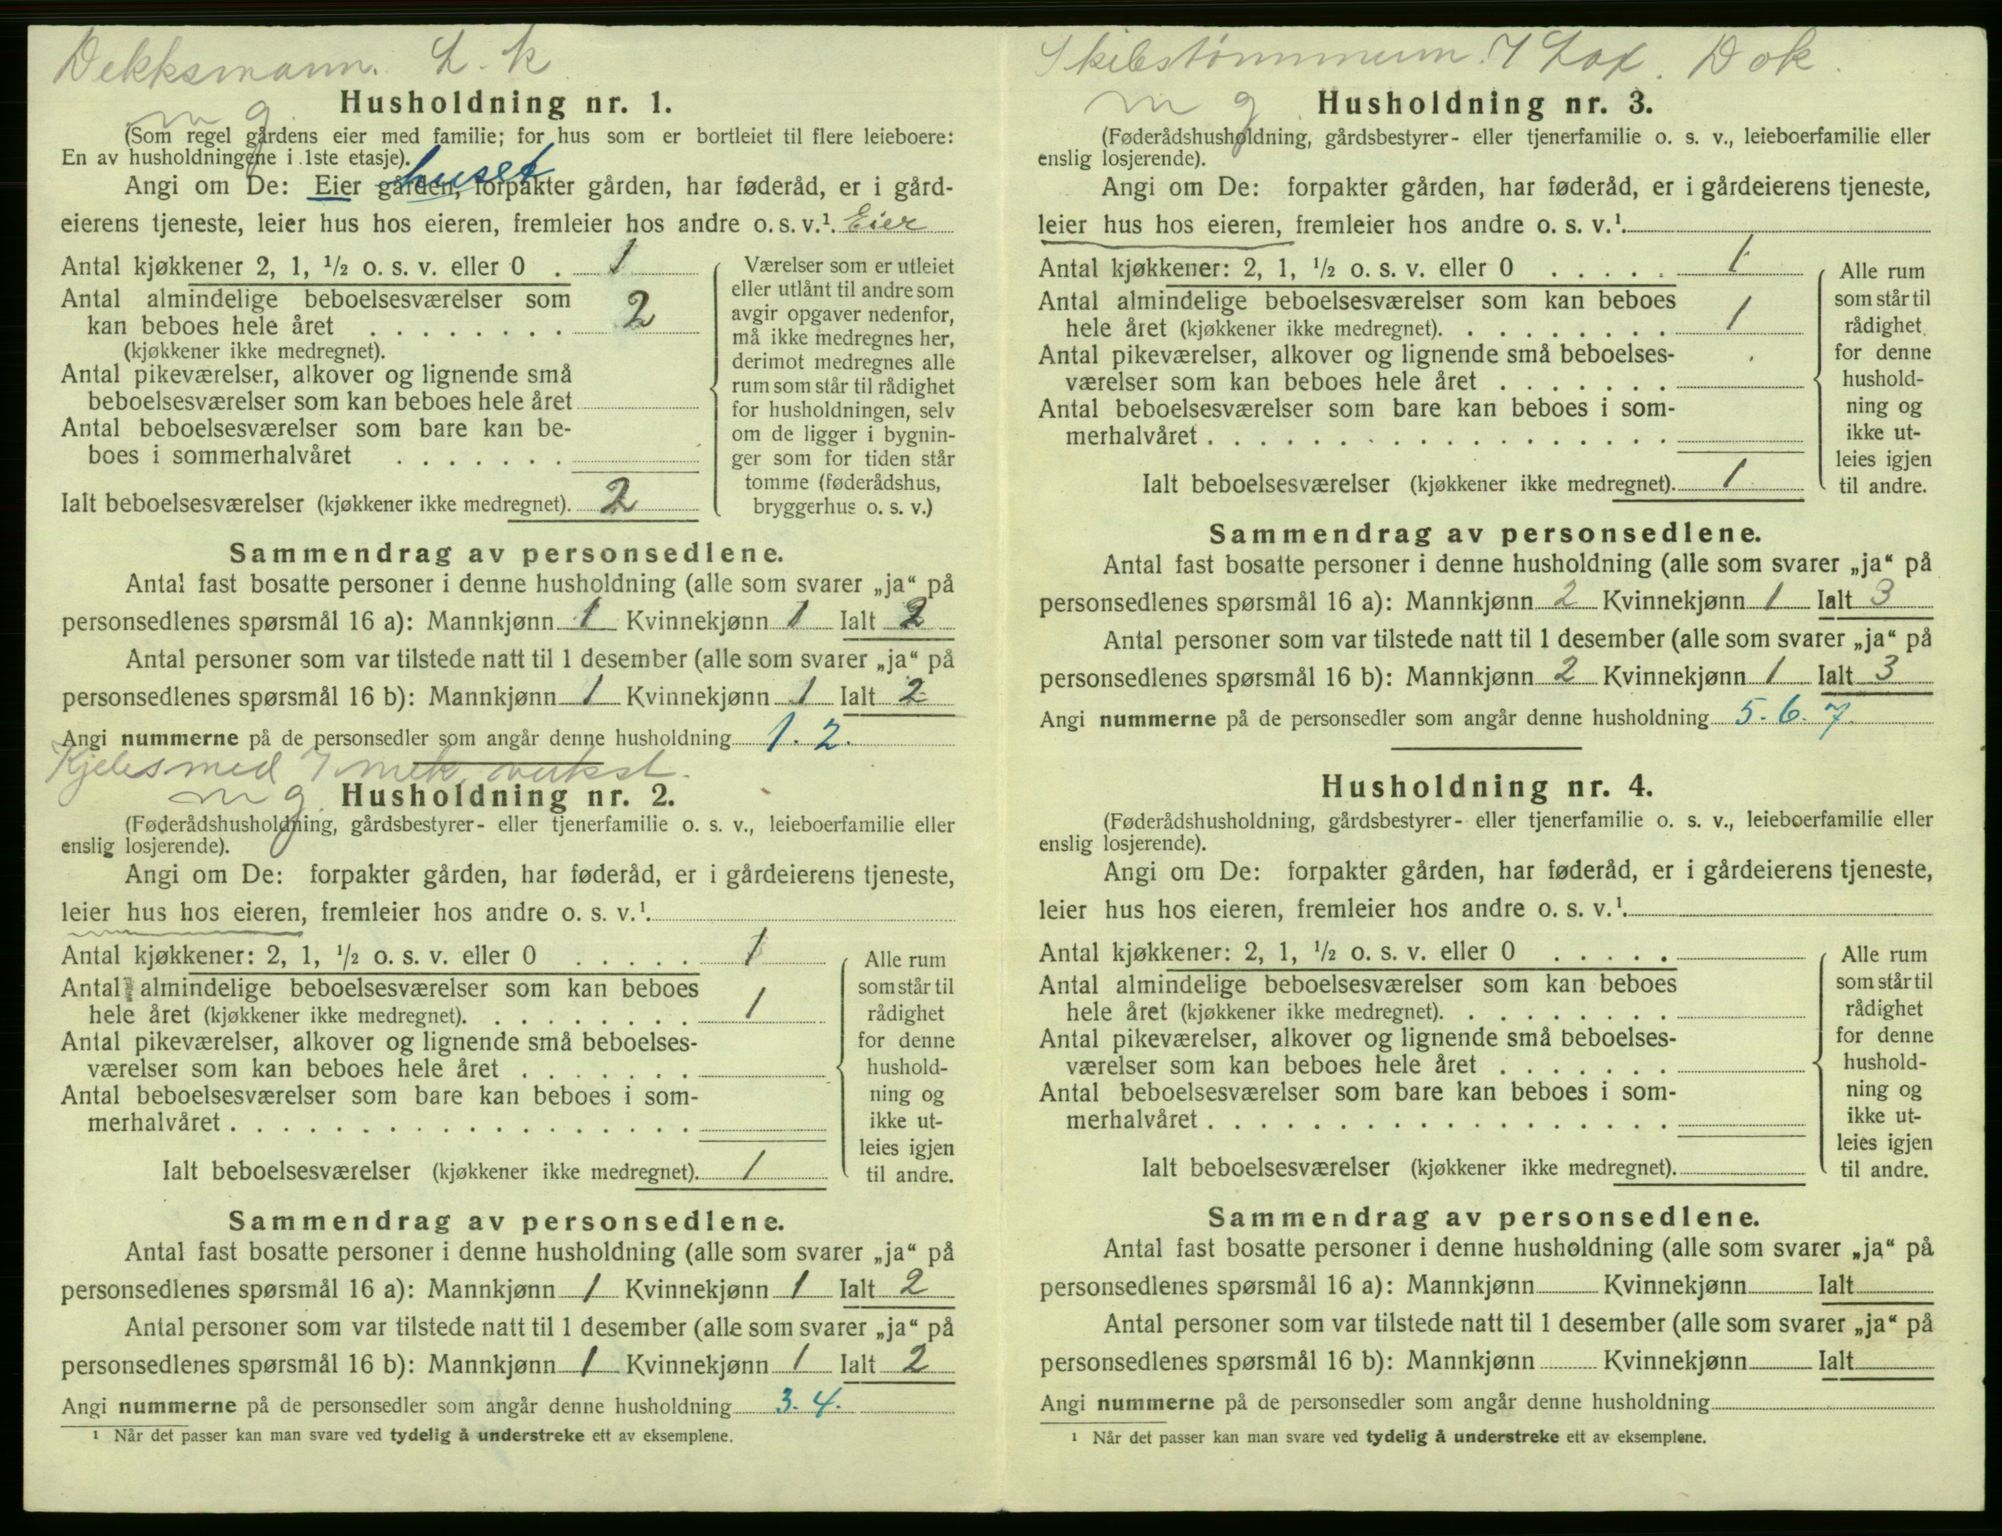 Dekksmann. L. k
m g
Husholdning nr. 1.
(Som regel gårdens eier med familie; for hus som er bortleiet til flere leieboere:
En av husholdningene i 1ste etasje).
huset
Angi om De: Eier gården, forpakter gården, har føderåd, er i gård-
eierens tjeneste, leier hus hos eieren, fremleier hos andre o. s. v.¹. Eier
Antal kjøkkener 2, 1, ½ o. s. v. eller 0 . 1
Antal almindelige beboelsesværelser som
kan beboes hele året . . . . . . . . 2
(kjøkkener ikke medregnet).
Antal pikeværelser, alkover og lignende små
beboelsesværelser som kan beboes hele året
Antal beboelsesværelser som bare kan be-
boes i sommerhalvåret . . . . . . .
Ialt beboelsesværelser (kjøkkener ikke medregnet). 2
Værelser som er utleiet
eller utlånt til andre som
avgir opgaver nedenfor,
må ikke medregnes her,
derimot medregnes alle
rum som står til rådighet
for husholdningen, selv
om de ligger i bygnin-
ger som for tiden står
tomme (føderådshus,
bryggerhus o. s. v.)
Sammendrag av personsedlene.
Antal fast bosatte personer i denne husholdning (alle som svarer „ja“ på
personsedlenes spørsmål 16 a): Mannkjønn 1 Kvinnekjønn 1 Ialt 2
Antal personer som var tilstede natt til 1 desember (alle som svarer „ja“ på
personsedlenes spørsmål 16 b): Mannkjønn 1 Kvinnekjønn 1 Ialt 2
Angi nummerne på de personsedler som angår denne husholdning 1. 2.
Kjelesmed 7 mek. verkst.
m g.
Husholdning nr. 2.
(Føderådshusholdning, gårdsbestyrer- eller tjenerfamilie o. s. v., leieboerfamilie eller
enslig losjerende).
Angi om De: forpakter gården, har føderåd, er i gårdeierens tjeneste,
leier hus hos eieren, fremleier hos andre o. s. v.¹.
Antal kjøkkener: 2, 1, ½ o. s. v. eller 0 . . . . . 1
Antal almindelige beboelsesværelser som kan beboes
hele året (kjøkkener ikke medregnet). . . . . . . . . 1
Antal pikeværelser, alkover og lignende små beboelses-
værelser som kan beboes hele året . . . . . . .
Antal beboelsesværelser som bare kan beboes i som-
merhalvåret . . . . . . . . . . . . . . . . . .
Ialt beboelsesværelser (kjøkkener ikke medregnet). 1
Alle rum
som står til
rådighet
for denne
hushold-
ning og
ikke ut-
leies igjen
til andre.
Sammendrag av personsedlene.
Antal fast bosatte personer i denne husholdning (alle som svarer „ja“ på
personsedlenes spørsmål 16 a): Mannkjønn 1 Kvinnekjønn 1 Ialt 2
Antal personer som var tilstede natt til 1 desember (alle som svarer „ja“ på
personsedlenes spørsmål 16 b): Mannkjønn 1 Kvinnekjønn 1 Ialt 2
Angi nummerne på de personsedler som angår denne husholdning 3. 4.
¹ Når det passer kan man svare ved tydelig å understreke ett av eksemplene.
Skibstømmerm. 7 Dok.
m g
Husholdning nr. 3.
(Føderådshusholdning, gårdsbestyrer- eller tjenerfamilie o. s. v., leieboerfamilie eller
enslig losjerende).
Angi om De: forpakter gården, har føderåd, er i gårdeierens tjeneste,
leier hus hos eieren, fremleier hos andre o. s. v.¹.
Antal kjøkkener: 2, 1, ½ o. s. v. eller 0 . . . . . 1
Antal almindelige beboelsesværelser som kan beboes
hele året (kjøkkener ikke medregnet). . . . . . . . . 1
Antal pikeværelser, alkover og lignende små beboelses-
værelser som kan beboes hele året . . . . . . .
Antal beboelsesværelser som bare kan beboes i som-
merhalvåret . . . . . . . . . . . . . . . . . .
Ialt beboelsesværelser (kjøkkener ikke medregnet). 1
Alle rum
som står til
rådighet
for denne
hushold-
ning og
ikke ut-
leies igjen
til andre.
Sammendrag av personsedlene.
Antal fast bosatte personer i denne husholdning (alle som svarer „ja“ på
personsedlenes spørsmål 16 a): Mannkjønn 2 Kvinnekjønn 1 Ialt 3
Antal personer som var tilstede natt til 1 desember (alle som svarer „ja“ på
personsedlenes spørsmål 16 b): Mannkjønn 2 Kvinnekjønn 1 Ialt 3
Angi nummerne på de personsedler som angår denne husholdning 5. 6. 7.
Husholdning nr. 4.
(Føderådshusholdning, gårdsbestyrer- eller tjenerfamilie o. s. v., leieboerfamilie eller
enslig losjerende).
Angi om De: forpakter gården, har føderåd, er i gårdeierens tjeneste,
leier hus hos eieren, fremleier hos andre o. s. v.¹.
Antal kjøkkener: 2, 1, ½ o. s. v. eller 0 . . . . .
Antal almindelige beboelsesværelser som kan beboes
hele året (kjøkkener ikke medregnet). . . . . . . . .
Antal pikeværelser, alkover og lignende små beboelses-
værelser som kan beboes hele året . . . . . . .
Antal beboelsesværelser som bare kan beboes i som-
merhalvåret . . . . . . . . . . . . . . . . . .
Ialt beboelsesværelser (kjøkkener ikke medregnet).
Alle rum
som står til
rådighet
for denne
hushold-
ning og
ikke ut-
leies igjen
til andre.
Sammendrag av personsedlene.
Antal fast bosatte personer i denne husholdning (alle som svarer „ja“ på
personsedlenes spørsmål 16 a): Mannkjønn Kvinnekjønn Ialt
Antal personer som var tilstede natt til 1 desember (alle som svarer „ja“ på
personsedlenes spørsmål 16 b): Mannkjønn Kvinnekjønn Ialt
Angi nummerne på de personsedler som angår denne husholdning
¹ Når det passer kan man svare ved tydelig å understreke ett av eksemplene.